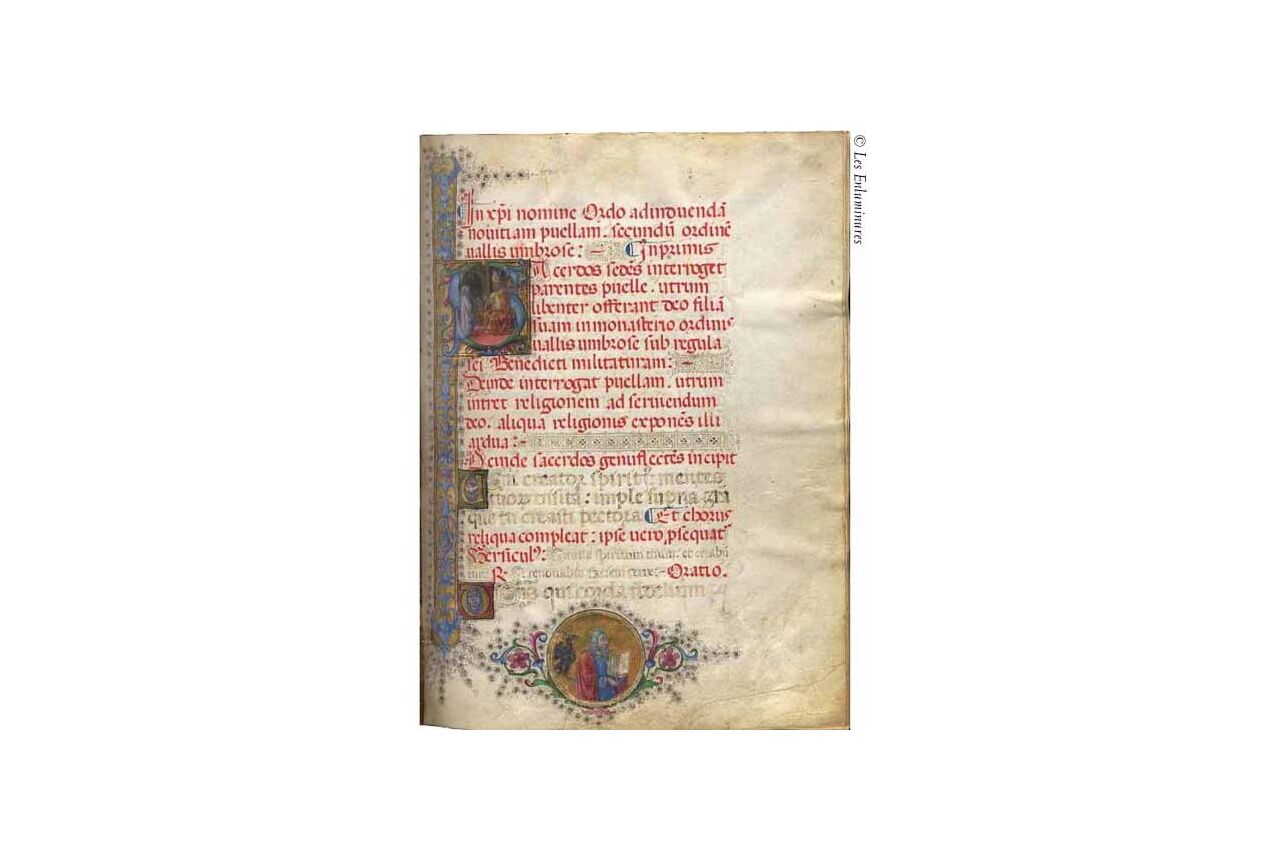 In xp̄i nomine Ordo ad induendā
novitiam puellam. secundū ordinē
uallis umbrose: Inprimis
Sacerdos sedēs interroget
parentes puelle. utrum
libenter offerant deo filiā
suam in monasterio ordinis
uallis umbrose sub regula
sc̄i Benedicti militaturam:
Deinde interrogat puellam. utrum
intret religionem ad seruiendum
deo. aliqua religionis exponēs illi
ardua:
Deinde sacerdos genuflectēs incipit
Veni creator spiritus mentes
tuorum uisita: imple superna gratia
que tu creasti pectora Et chorus
reliqua compleat: ipse uero ꝓsequat
Versicul9: Emitte spiritum tuum et creabū
R Et renouabis faciem terre. Oratio.
Deus qui corda fidelium
© Les Enluminures